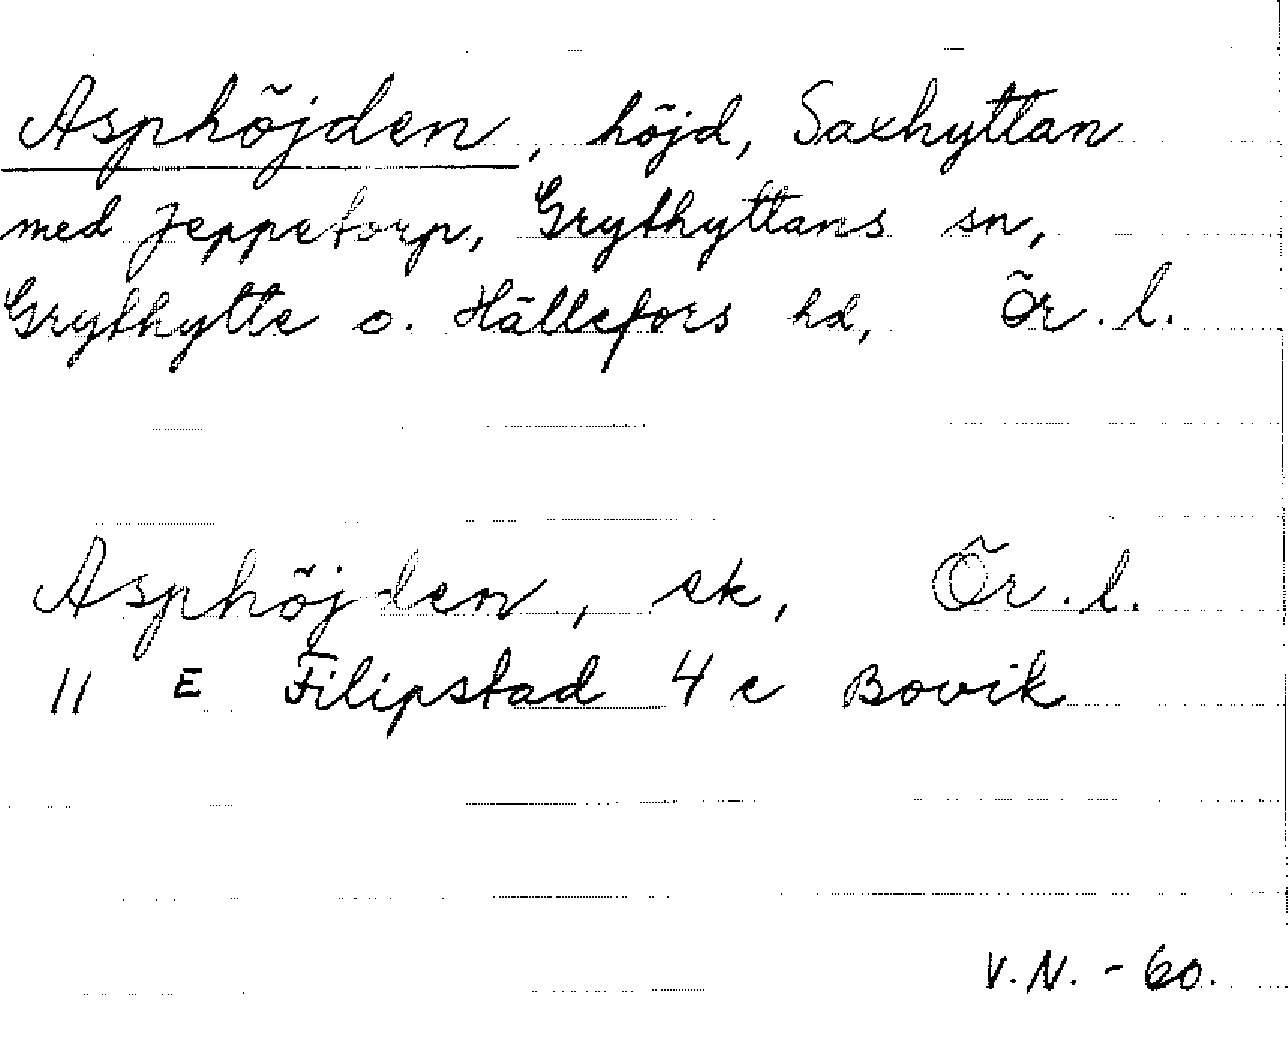 Asphöjden, höjd, Saxhyttan
med Jeppetorp, Grythyttans sn,
Grythytte o. Hällefors hd, Ör. l.
Asphöjden, ek, Ör. l.
11 E Filipstad 4 c Bovik
V.N. - 60.